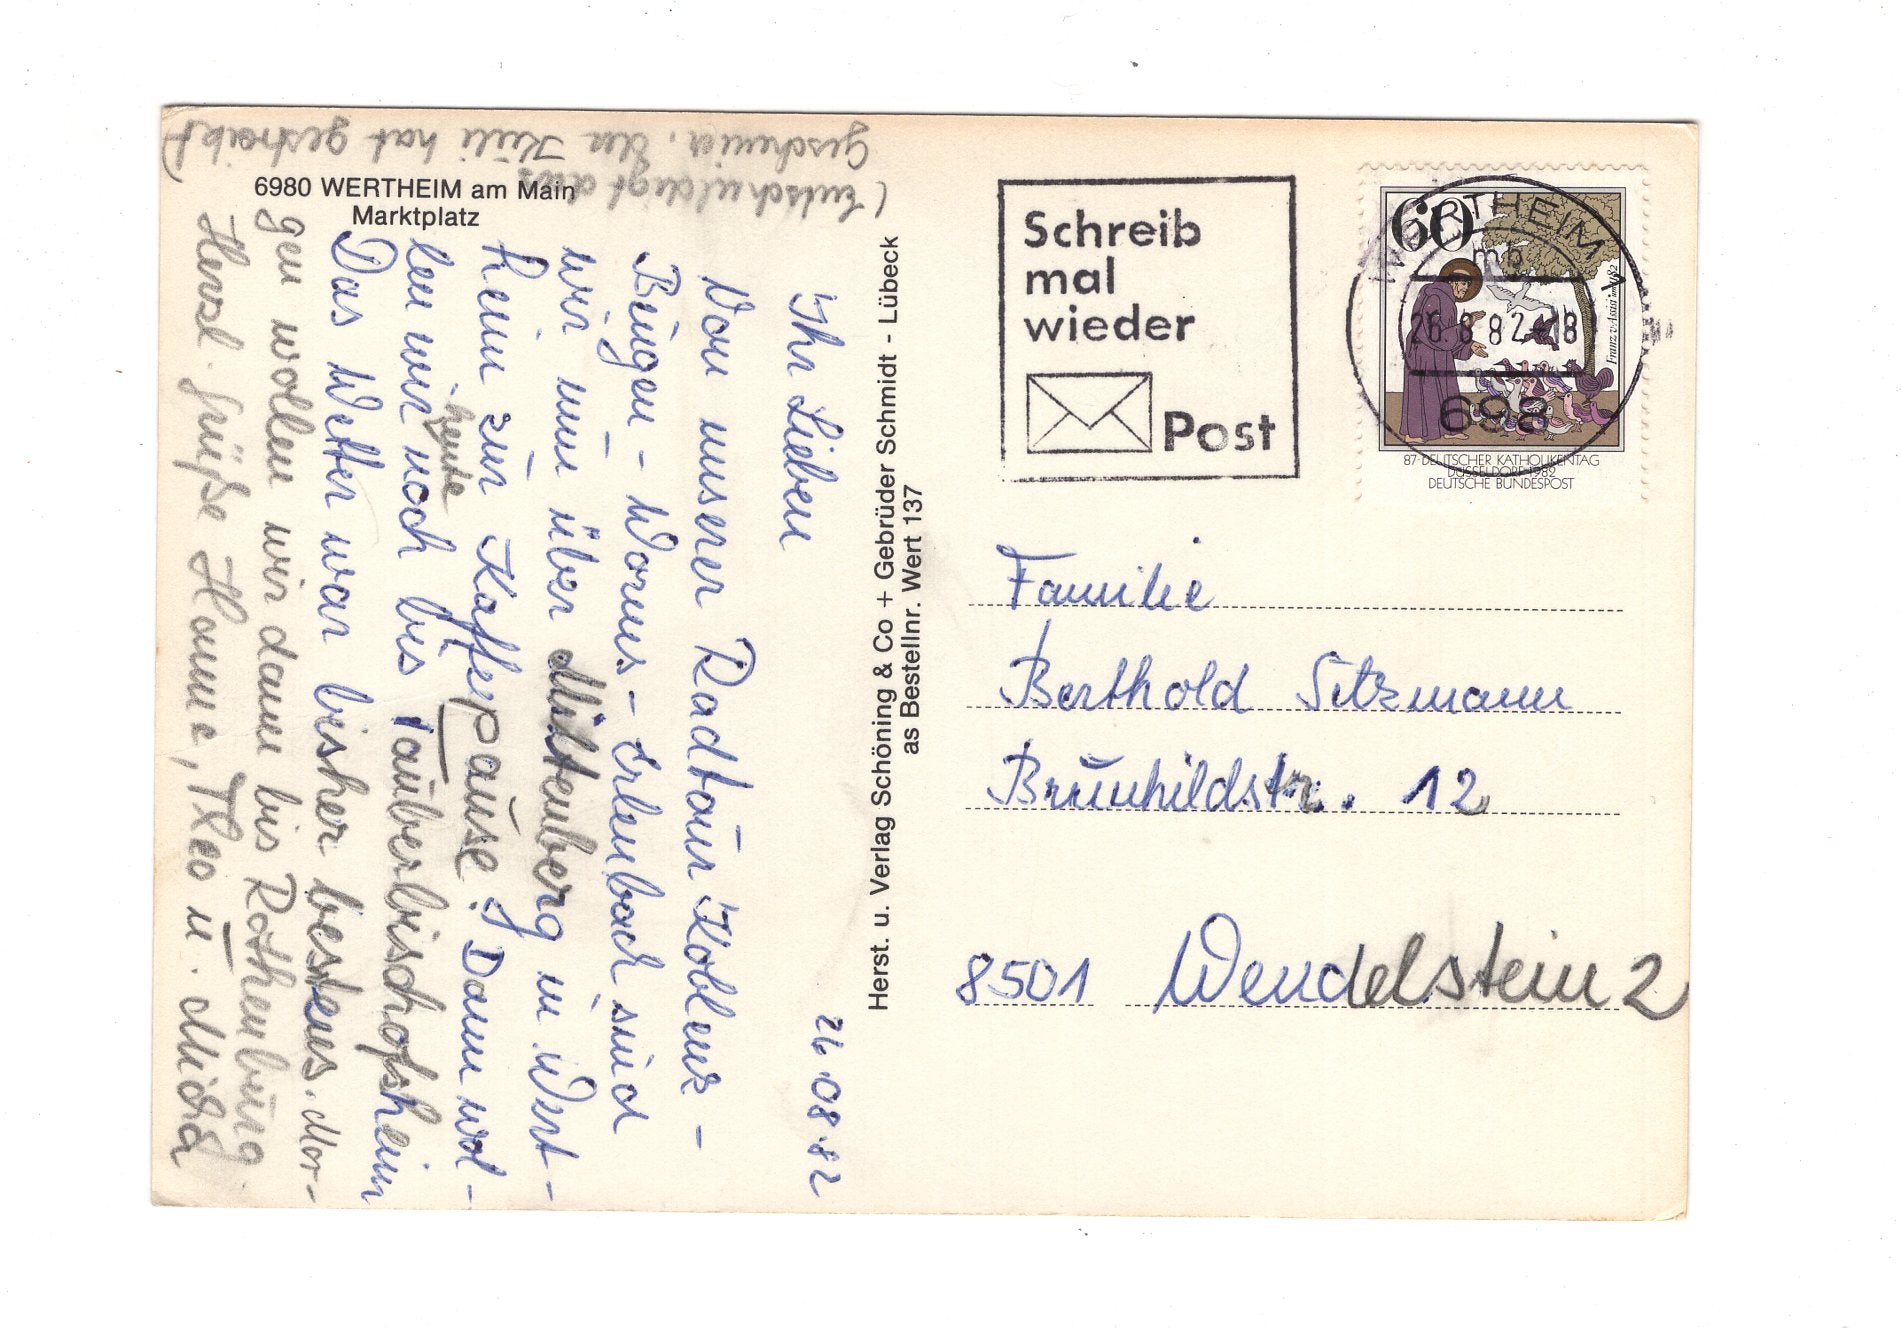 6980 WERTHEIM am Main
Marktplatz
26.08.82
Ihr Lieben
Von unserer Radtour Koblenz -
Bingen - Worms - Erlenbach sind
wir nun über Miltenberg in Wert-
heim zur Kaffeepause! Dann wol-
len wir noch heute bis Tauberbischofsheim
Das Wetter war bisher bestens. Mor-
gen wollen wir dann bis Rothenburg
Herzl. Grüße Hanne, Theo u.
(Entschuldigt das
Geschmier, der Kuli hat gestreikt)
Herst. u. Verlag Schöning & Co + Gebrüder Schmidt - Lübeck
as Bestellnr. Wert 137
Schreib
mal
wieder
Post
60
Franz v. Assisi um 1182
87. DEUTSCHER KATHOLIKENTAG
DÜSSELDORF 1982
DEUTSCHE BUNDESPOST
WERTHEIM 1
mb
26.8.82-18
698
Familie
Berthold Sitzmann
Brunhildstr. 12
8501 Wendelstein 2